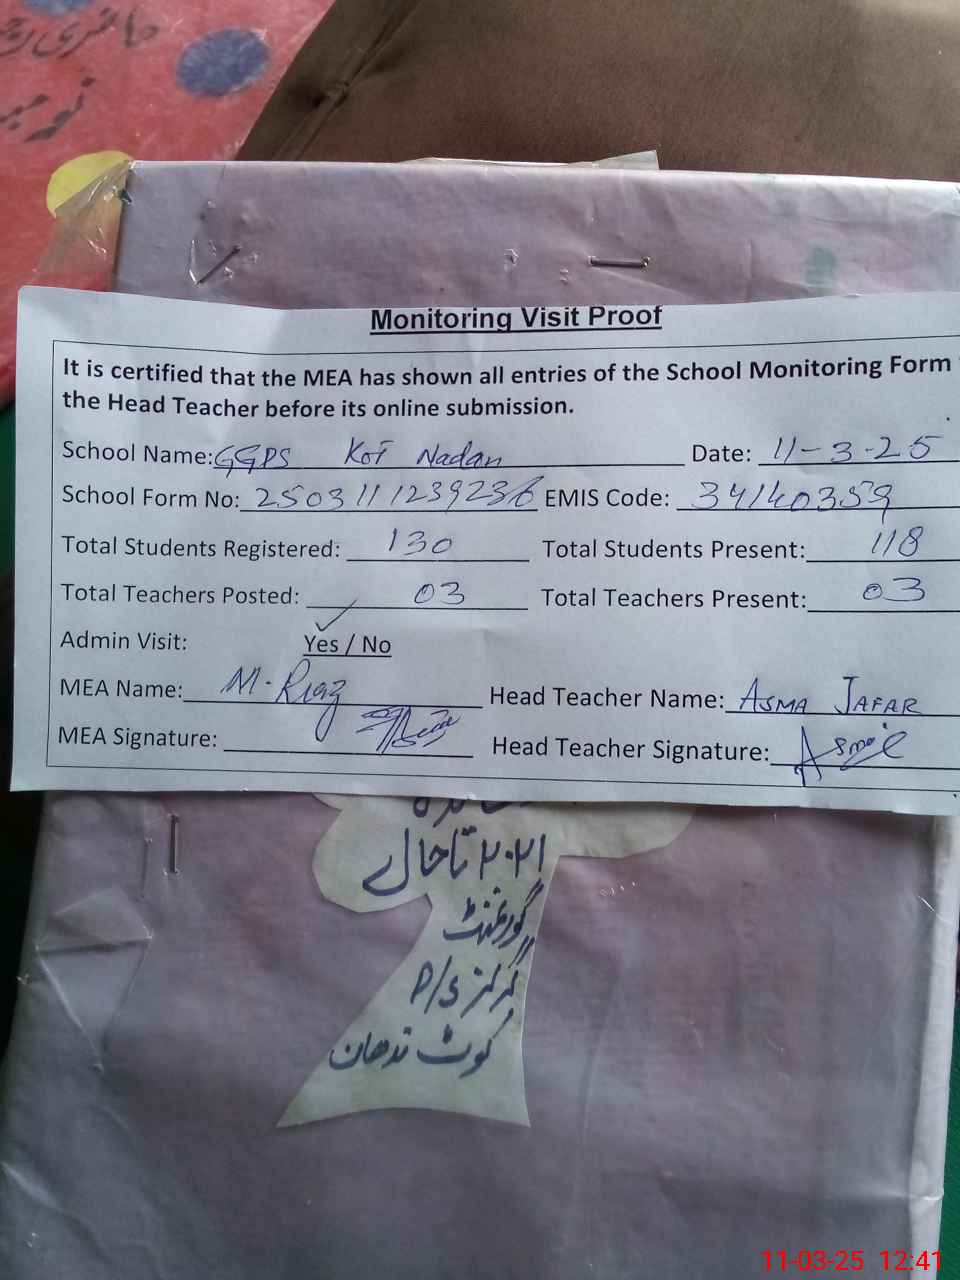 حاضری
نومبر
Monitoring Visit Proof
It is certified that the MEA has shown all entries of the School Monitoring Form
the Head Teacher before its online submission.
School Name: GGPS Kot Nadan Date: 11-3-25
School Form No: 2503111239236 EMIS Code: 34140359
Total Students Registered: 130 Total Students Present: 118
Total Teachers Posted: 03 Total Teachers Present: 03
Admin Visit: Yes / No
MEA Name: M. Riaz Head Teacher Name: ASMA JAFAR
MEA Signature: Head Teacher Signature: Asma
۲۰۲۱ تا حال
گورنمنٹ
گرلز P/S
کوٹ ندھان
11-03-25 12:41